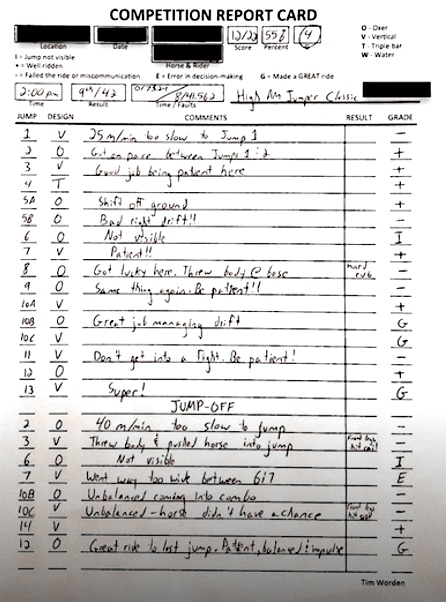 COMPETITION REPORT CARD
12/22 55% 4
Location Date Horse & Rider Score Percent
O - Oxer
V - Vertical
T - Triple bar
W - Water
I = Jump not visible
+ = Well ridden
- = Failed the ride or miscommunication E = Error in decision-making G = Made a GREAT ride
2:00pm 9th/42 0/73.29 8/41.562 High Am Jumper Classic
Time Result Time / Faults
JUMP DESIGN COMMENTS RESULT GRADE
1 V 25 m/min too slow to Jump 1 -
2 O Got on pace between Jumps 1 & 2 +
3 V Good job being patient here +
4 T +
5A O Shift off ground +
5B O Bad right drift!! -
6 O Not visible I
7 V Patient!! +
8 O Got lucky here. Threw body @ base hard rub -
9 O Same thing again. Be patient!! -
10A V +
10B O Great job managing drift G
10C V G
11 V Don't get into a fight. Be patient! -
12 O +
13 V Super! G
JUMP-OFF
2 O 40 m/min too slow to jump -
3 V Threw body & pushed horse into jump Front legs hit rail -
6 O Not visible I
7 V Went way too wide between 6 & 7 E
10B O Unbalanced coming into combo -
10C V Unbalanced - horse didn't have a chance Front legs hit rail -
14 V +
12 O Great ride to last jump. Patient, balanced & impulse G
Tim Worden